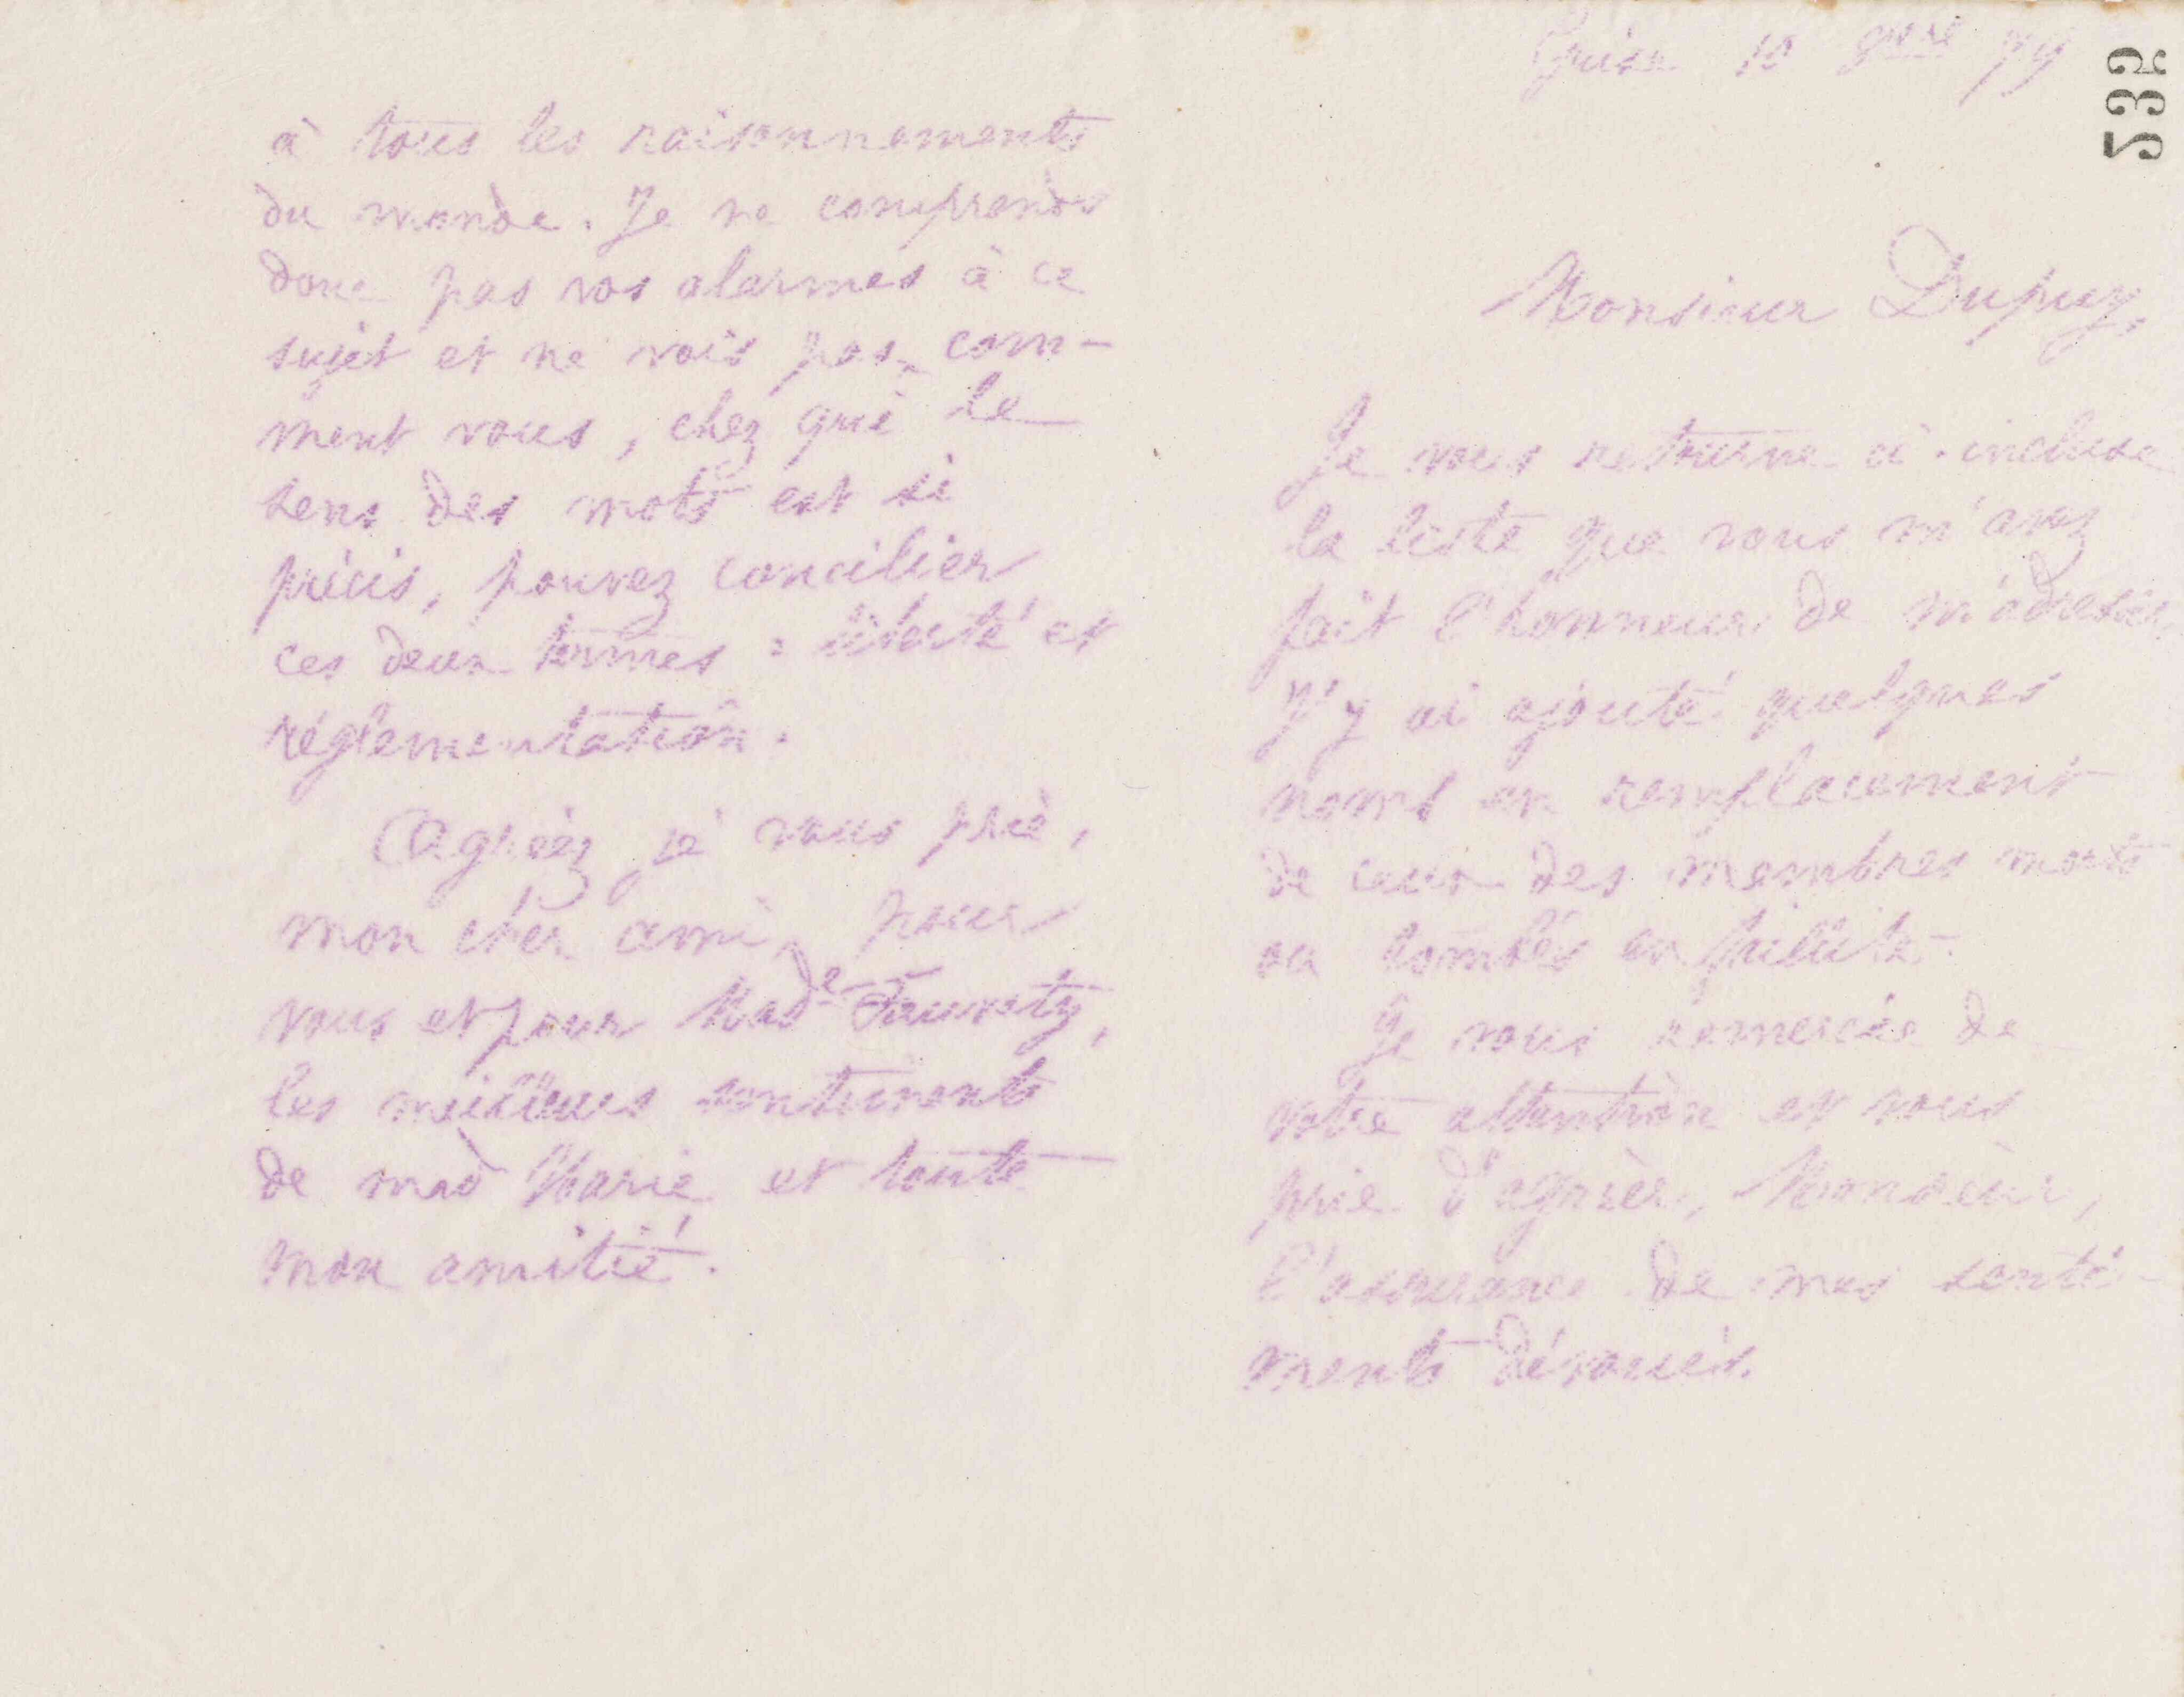 à tous les raisonnements
du monde. Je ne comprends
donc pas vos alarmes à ce
sujet et ne vois pas, com-
ment vous, chez qui le
sens des mots est si
précis, pouvez concilier
ces deux termes : liberté et
réglementation.
Agréez, je vous prie,
mon cher ami, pour
vous et pour Mad.e Fauvety,
les meilleurs sentiments
de mad Marie et toute
mon amitié.
Guise 10 9bre 79
532
Monsieur Dupuy,
Je vous retourne ci-incluse
la liste que vous m'avez
fait l'honneur de m'adresser.
J'y ai ajouté quelques
noms en remplacement
de ceux des membres morts
ou tombés en faillite.
Je vous remercie de
votre attention et vous
prie d'agréer, Monsieur,
l'assurance de mes senti-
ments dévoués.